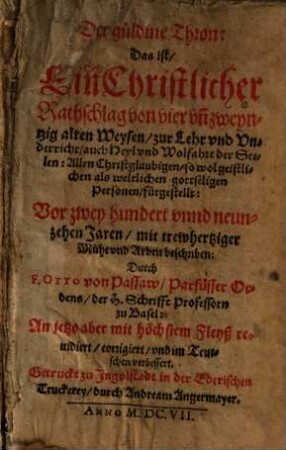 Der güldine Thron:
Das ist/
Ein Christlicher
Rathschlag von vier vñ zweyn-
tzig alten Weysen/ zur Lehr vnd Vn-
derricht/ auch Heyl vnd Wolfahrt der See-
len: Allen Christglaubigen/ so wol geistli-
chen als weltlichen gottseligen
Personen/ fürgestellt:
Vor zwey hundert vnnd neun-
zehen Jaren/ mit trewhertziger
Mühe vnd Arbeit beschriben:
Durch
F. OTTO von Passaw/ Parfüsser Or-
dens/ der H. Schrifft Professorn
zu Basel:
An jetzo aber mit höchstem Fleyß re-
uidiert/ corrigiert/ vnd im Teut-
schen verbessert.
Getruckt zu Ingolstadt in der Ederischen
Truckerey/ durch Andream Angermayer.
ANNO M. DC. VII.